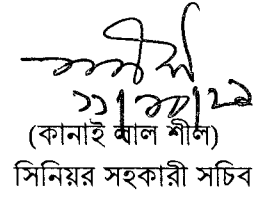 (কানাই লাল শীল)
সিনিয়র সহকারী সচিব